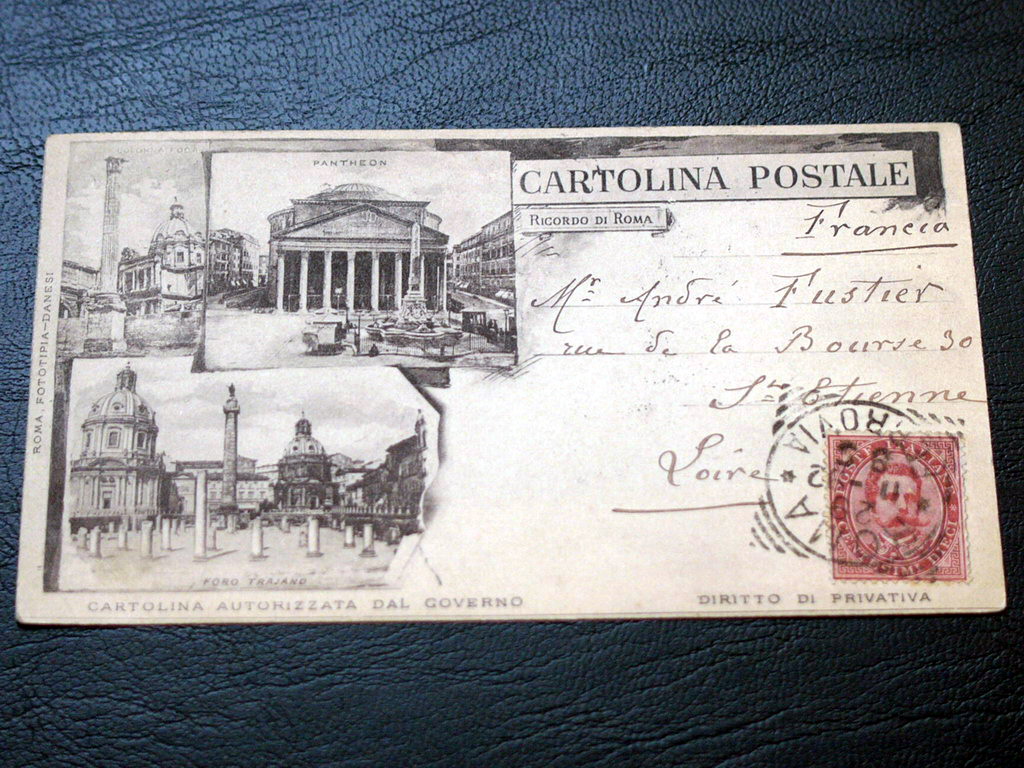 PANTHEON
CARTOLINA POSTALE
RICORDO DI ROMA
Francia
Mr André Fustier
rue de la Bourse 30
St Etienne
Loire
ROMA
FERROVIA
FORO TRAIANO
ROMA, FOTOTIPIA-DANESI
CARTOLINA AUTORIZZATA DAL GOVERNO
DIRITTO DI PRIVATIVA